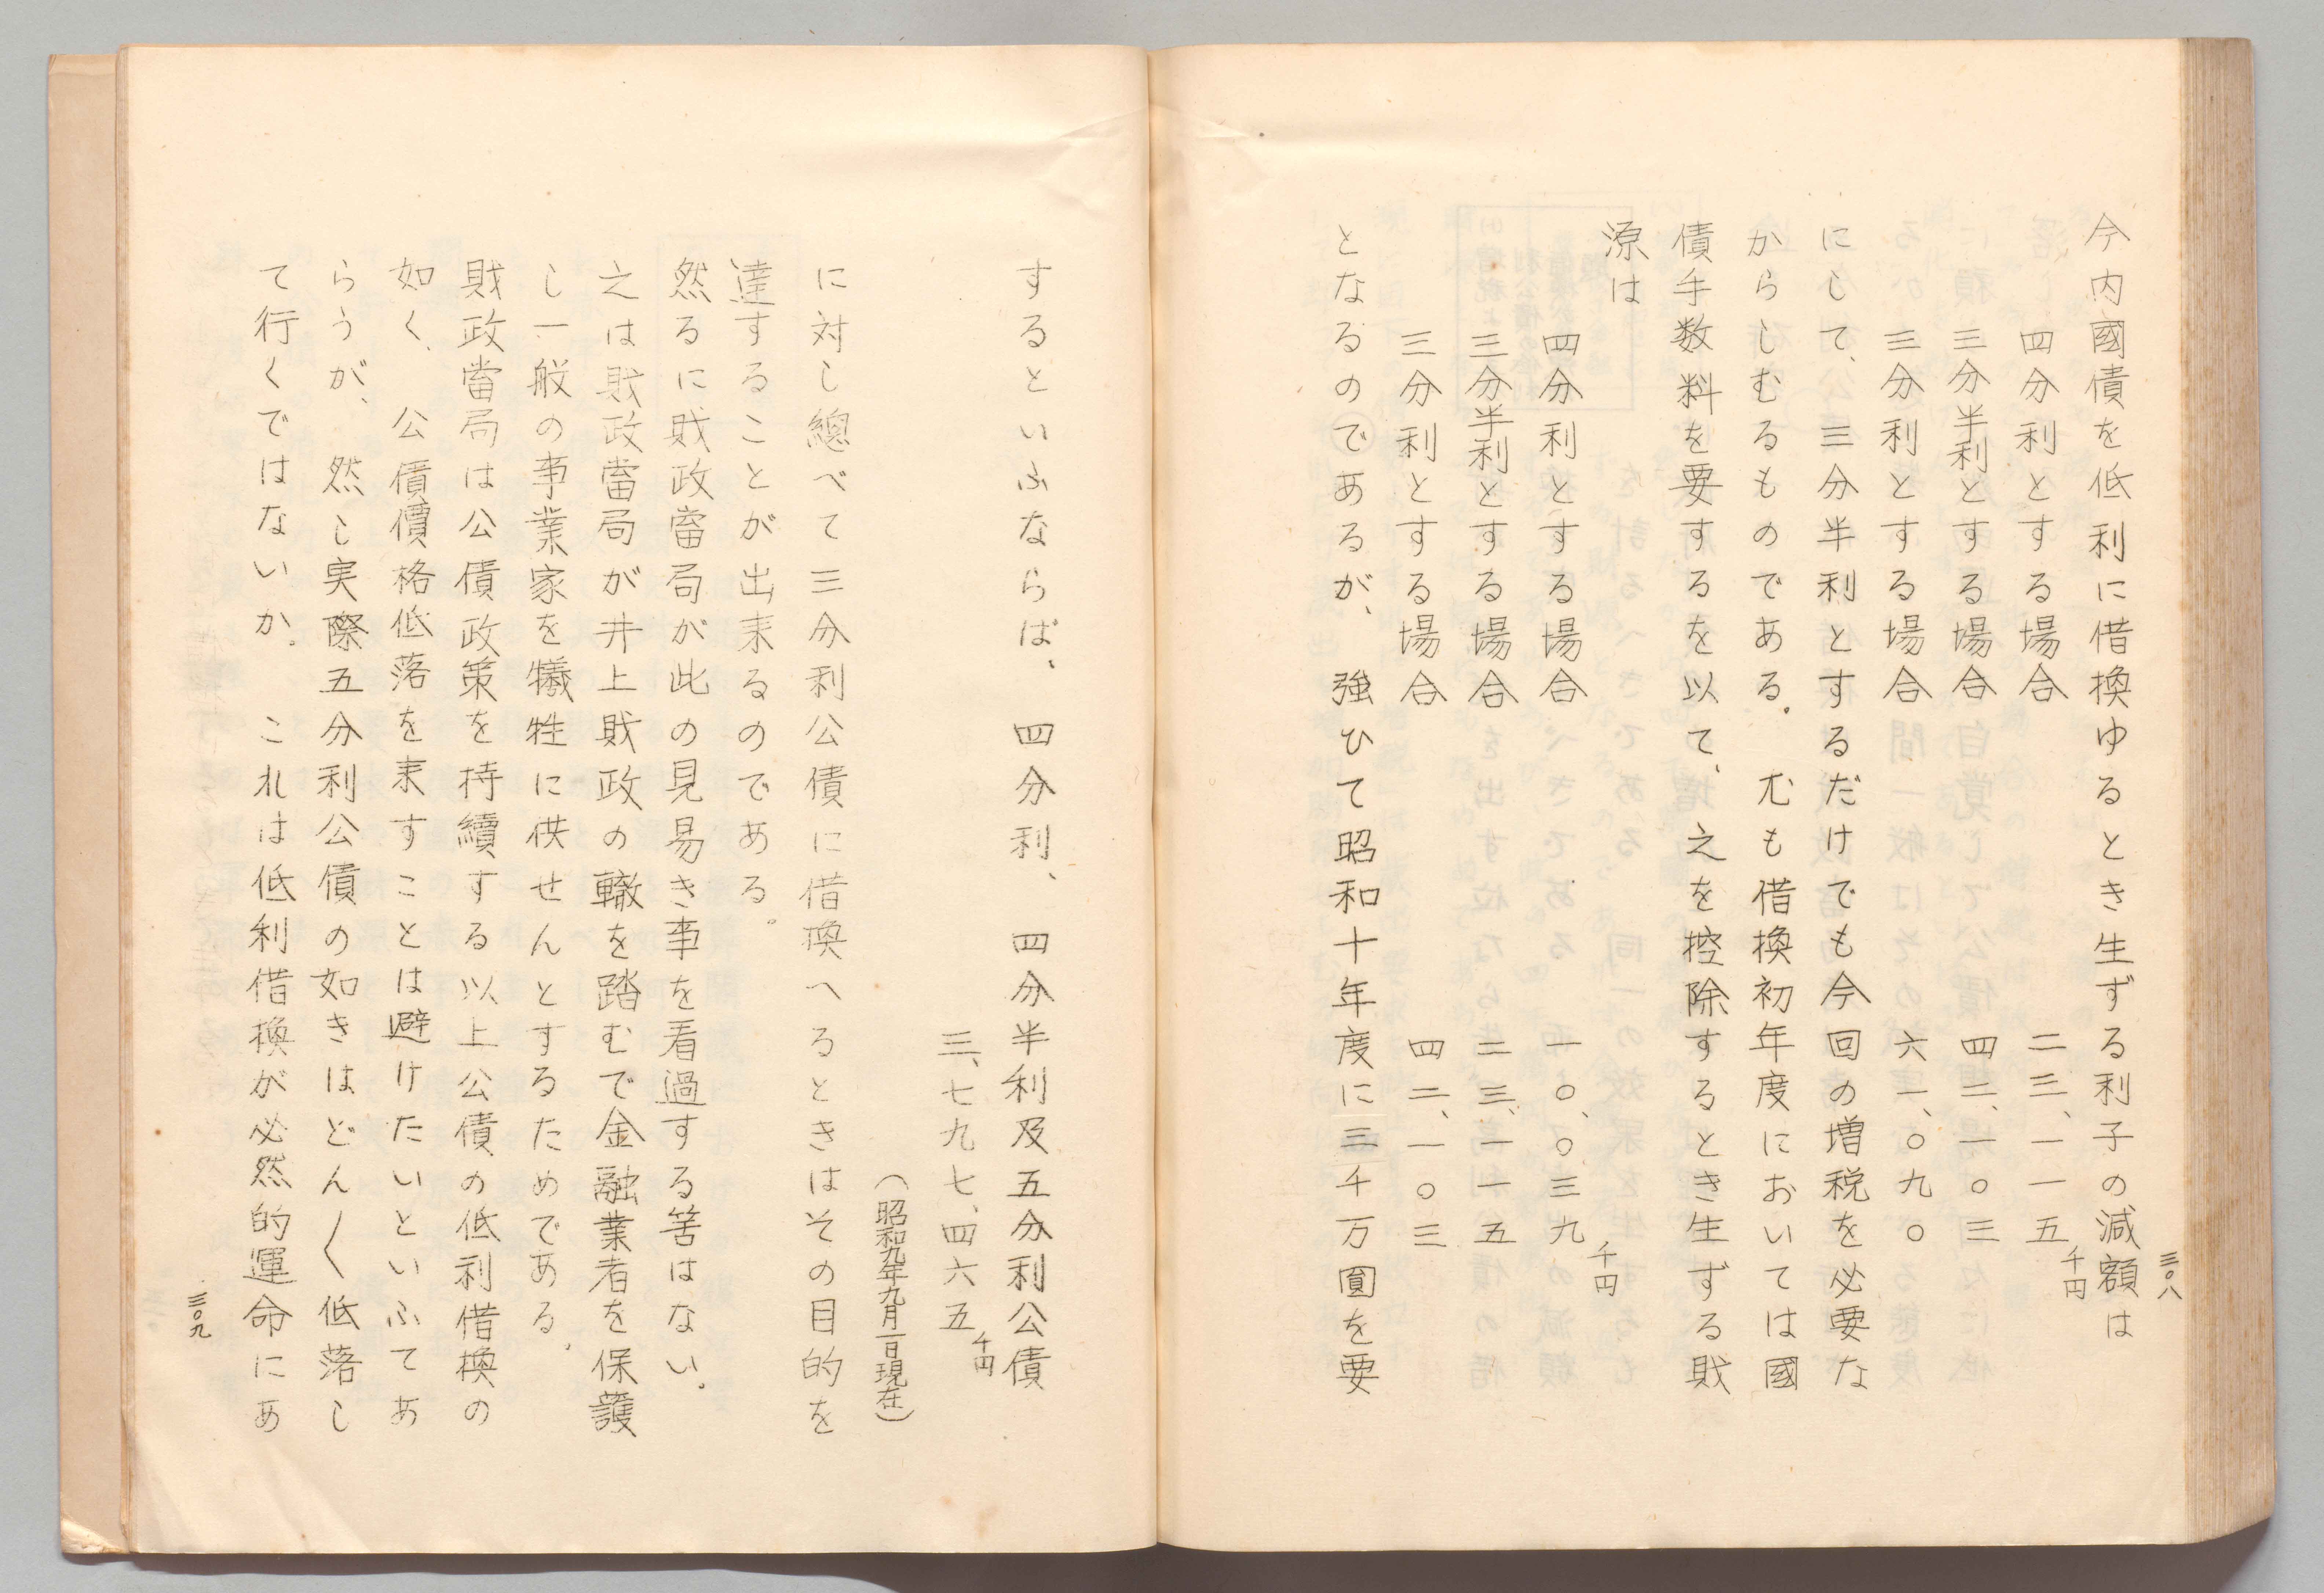 三〇八
今内國債を低利に借換ゆるとき生ずる利子の減額は
千円
四分利とする場合　二三、一一五
三分半利とする場合　四二、一〇三
三分利とする場合　六一、〇九〇
にして、三分半利とするだけでも今回の増税を必要な
からしむるものである。尤も借換初年度においては國
債手数料を要するを以て、之を控除するとき生ずる財
源は
千円
四分利とする場合　一〇、〇三九
三分半利とする場合　二三、一一五
三分利とする場合　四二、一〇三
となるのであるが、強ひて昭和十年度に三千万圓を要
するといふならば、四分利、四分半利及五分利公債
千円
三、七九七、四六五
（昭和九年九月一日現在）
に対し總べて三分利公債に借換へるときはその目的を
達することが出来るのである。
然るに財政當局が此の見易き事を看過する筈はない。
之は財政當局が井上財政の轍を踏むで金融業者を保護
し一般の事業家を犠牲に供せんとするためである。
財政當局は公債政策を持續する以上公債の低利借換の
如く、公債價格低落を来すことは避けたいといふてあ
らうが、然し実際五分利公債の如きはどん〳〵低落し
て行くではないか。これは低利借換が必然的運命にあ
三〇九